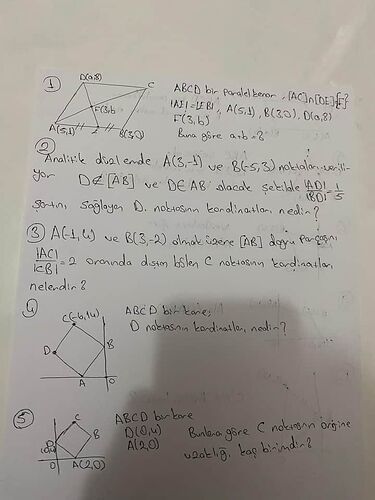 1
D(a,8)
C
ABCD bir paralelkenar, [AC]∩[DE]={F}
|AE|=|EB|, A(5,1), B(3,0), D(a,8)
F(3,b)
F(3,b)
A(5,1)
B(3,0)
Buna göre a+b=?
2
Analitik düzlemde A(3,-1) ve B(-5,3) noktaları verili-
yor D∉[AB] ve D∈AB olacak şekilde |AD|/|BD|=1/5
şartını sağlayan D noktasının kordinatları nedir?
3 A(-1,4) ve B(3,-2) olmak üzere [AB] doğru parçasını
|AC|/|CB|=2 oranında dıştan bölen C noktasının kordinatları
nelerdir?
4
C(-6,14)
ABCD bir kare,
D noktasının kordinatları nedir?
D
B
A
0
5
C
ABCD bir kare
D(0,4)
Bunlara göre C noktasının orijine
B
A(2,0)
uzaklığı kaç birimdir?
0
A(2,0)